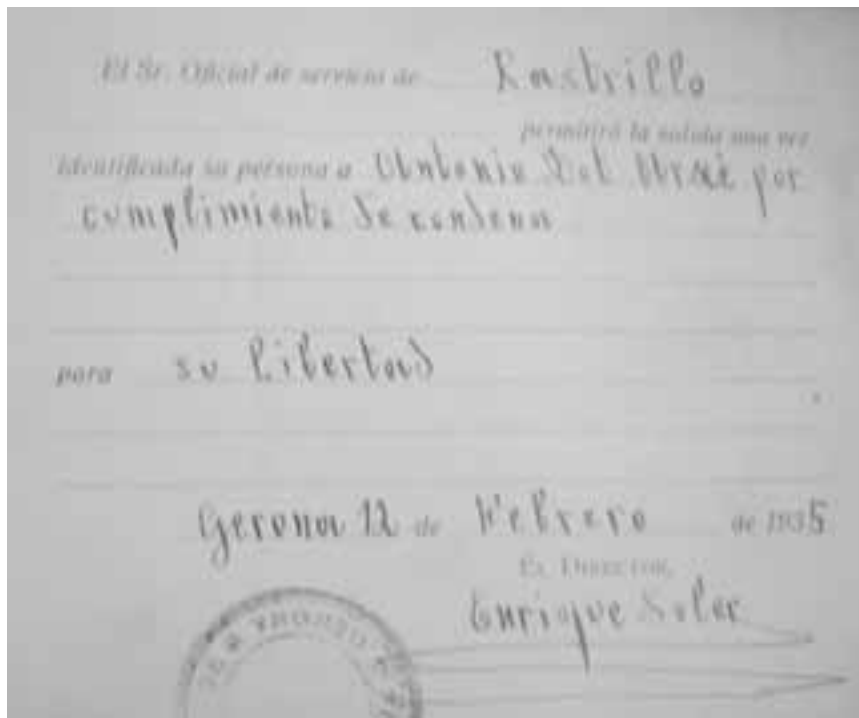 El Sr. Oficial de servicio de Rastrillo
permitirá la salida una vez
identificada su persona a Antonio por
cumplimiento de condena
para su libertad
Gerona 12 de Febrero de 1935
EL DIRECTOR,
Enrique Soler